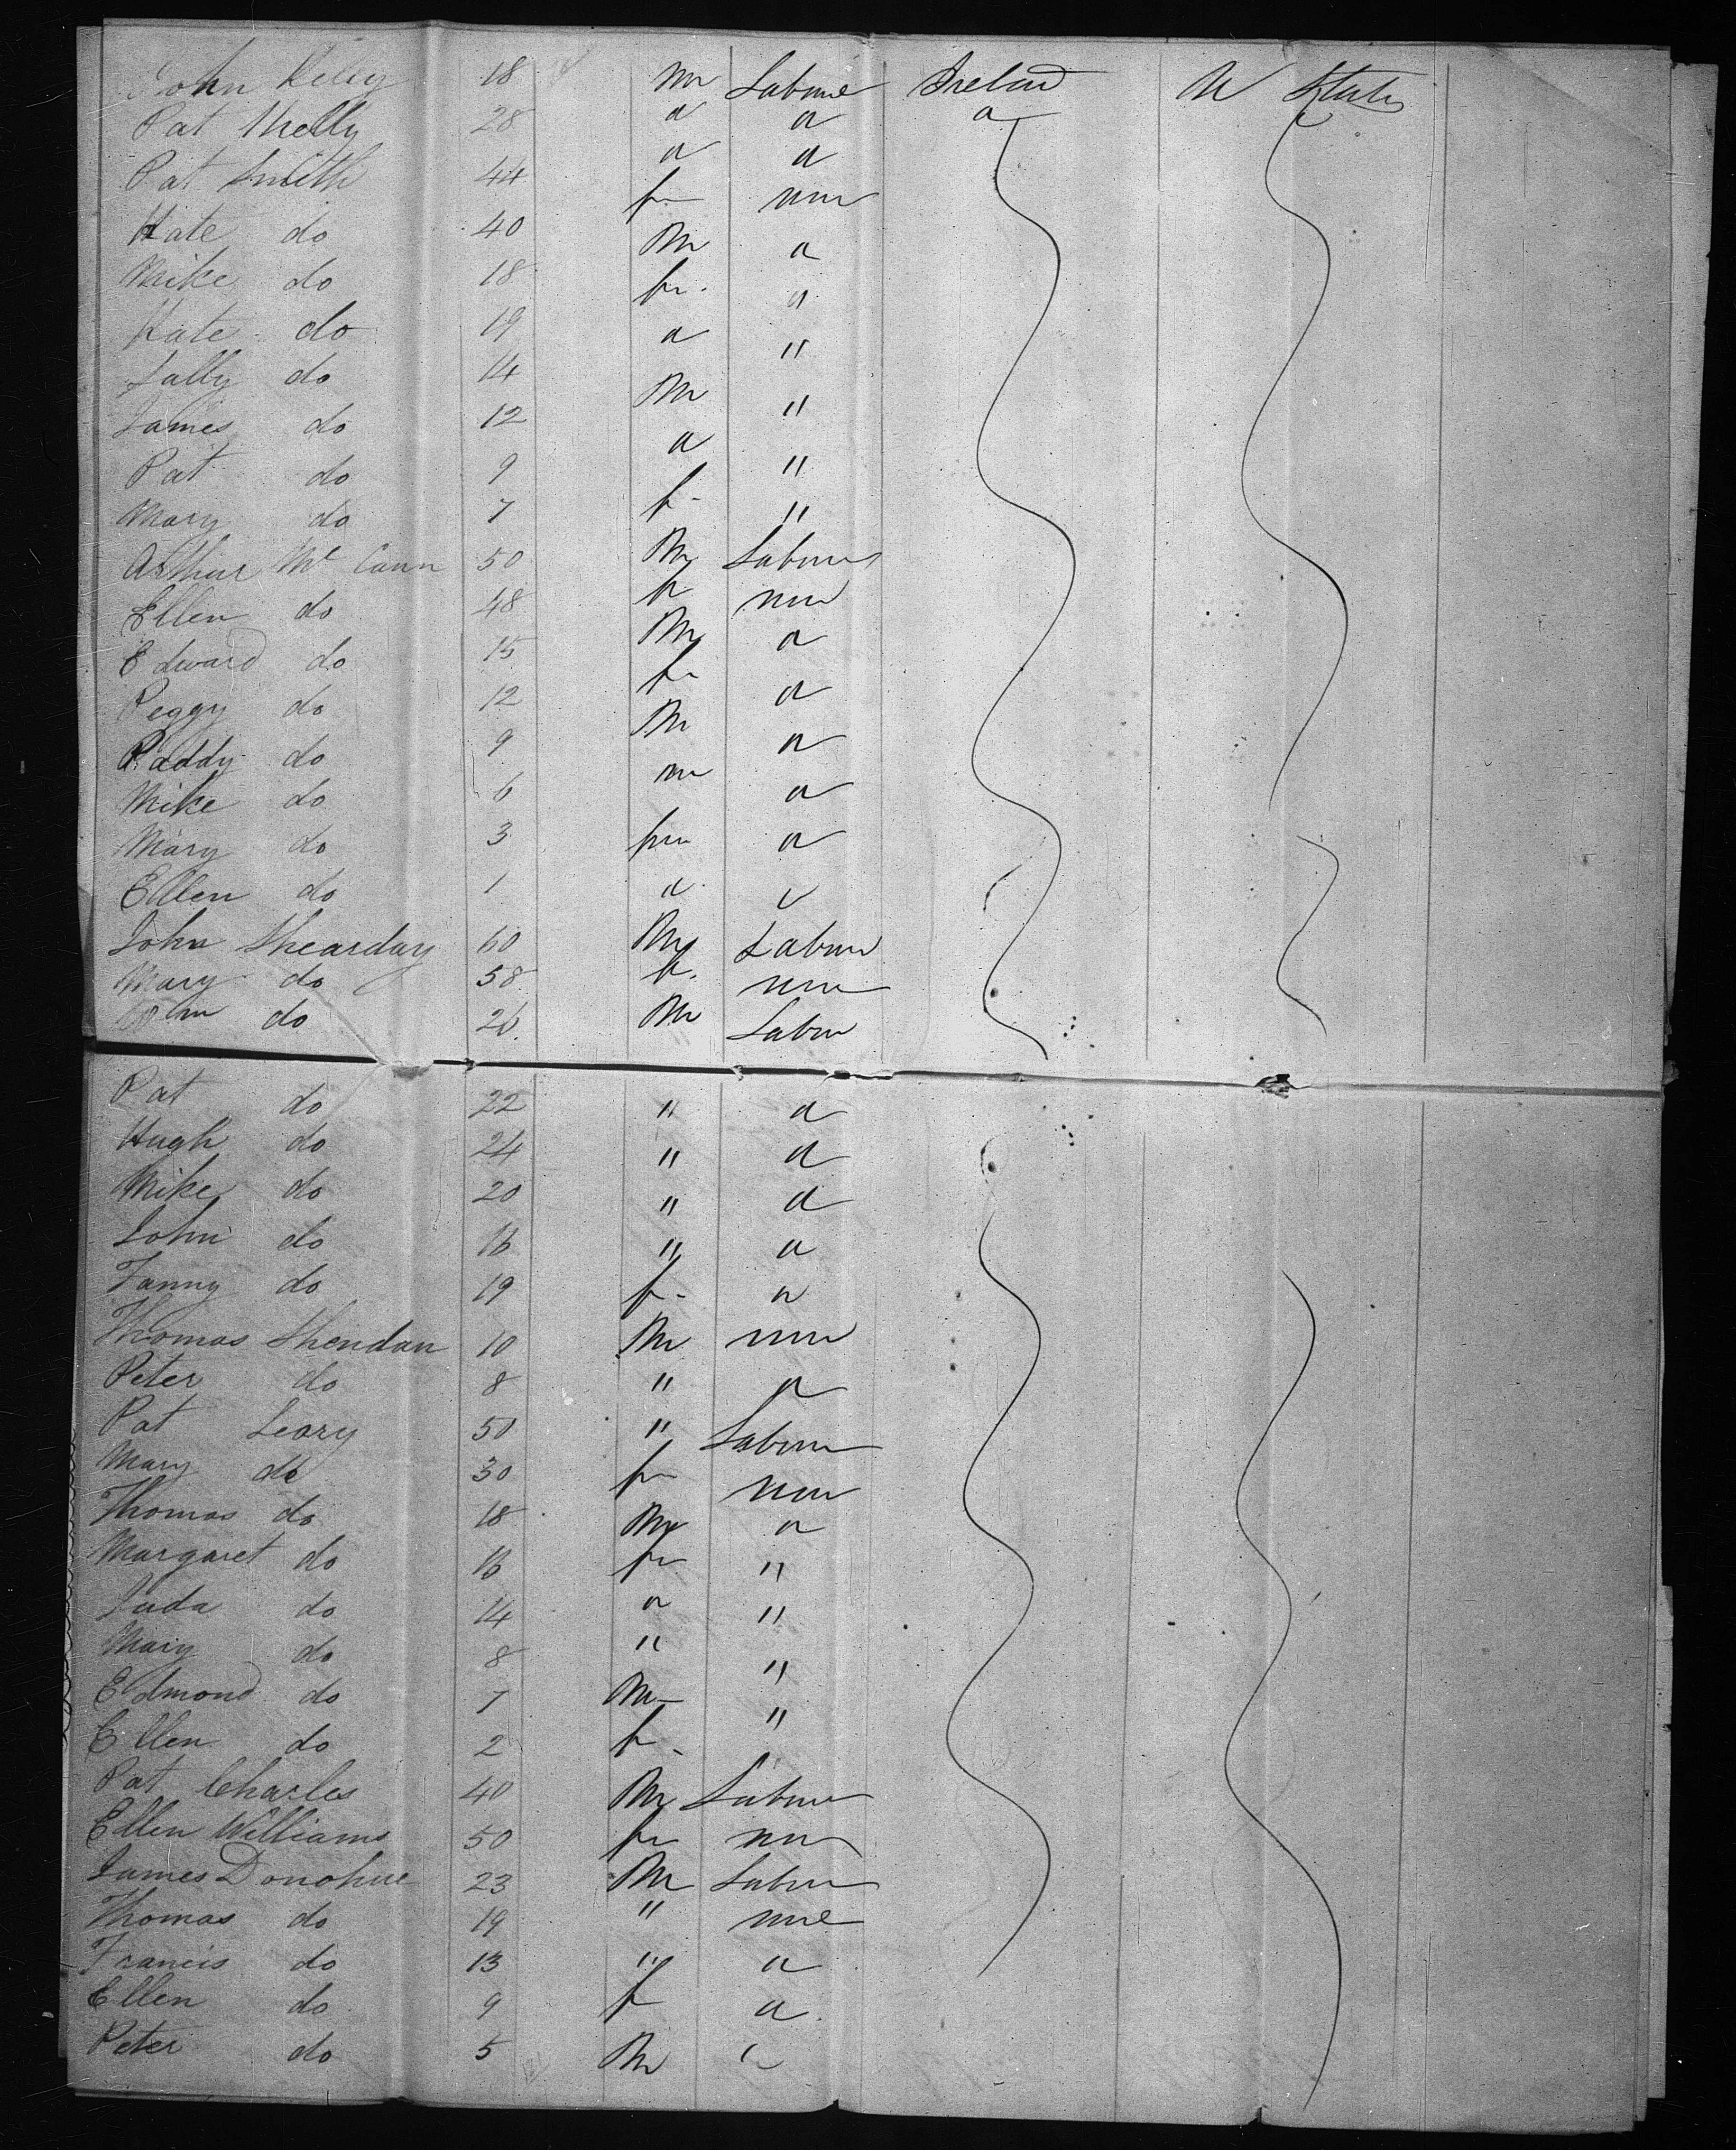 John Kelly 18 m Laborer Ireland U States
Pat Melly 28 " " "
Pat Smith 44 " "
Kate do 40 f none
Mike do 18 M "
Kate do 19 f "
Sally do 14 " "
James do 12 M "
Pat do 9 " "
Mary do 7 f "
Arthur Mc Cann 50 M Laborer
Ellen do 48 f none
Edward do 15 M "
Peggy do 12 f "
Paddy do 9 M "
Mike do 6 m "
Mary do 3 fm "
Ellen do 1 " "
John Shearday 60 M Labor
Mary do 58 f none
do 26 M Labor
Pat do 22 " "
Hugh do 24 " "
Mike do 20 " "
John do 16 " "
Fanny do 19 f "
Thomas Sheridan 10 M none
Peter do 8 " "
Pat Leary 50 " Laborer
Mary do 30 f none
Thomas do 18 M "
Margaret do 16 f "
Juda do 14 " "
Mary do 8 " "
Edmond do 7 M "
Ellen do 2 f "
Pat Charles 40 M Laborer
Ellen Williams 50 f none
James Donohue 23 M Laborer
Thomas do 19 " none
Francis do 13 " "
Ellen do 9 f "
Peter do 5 M "